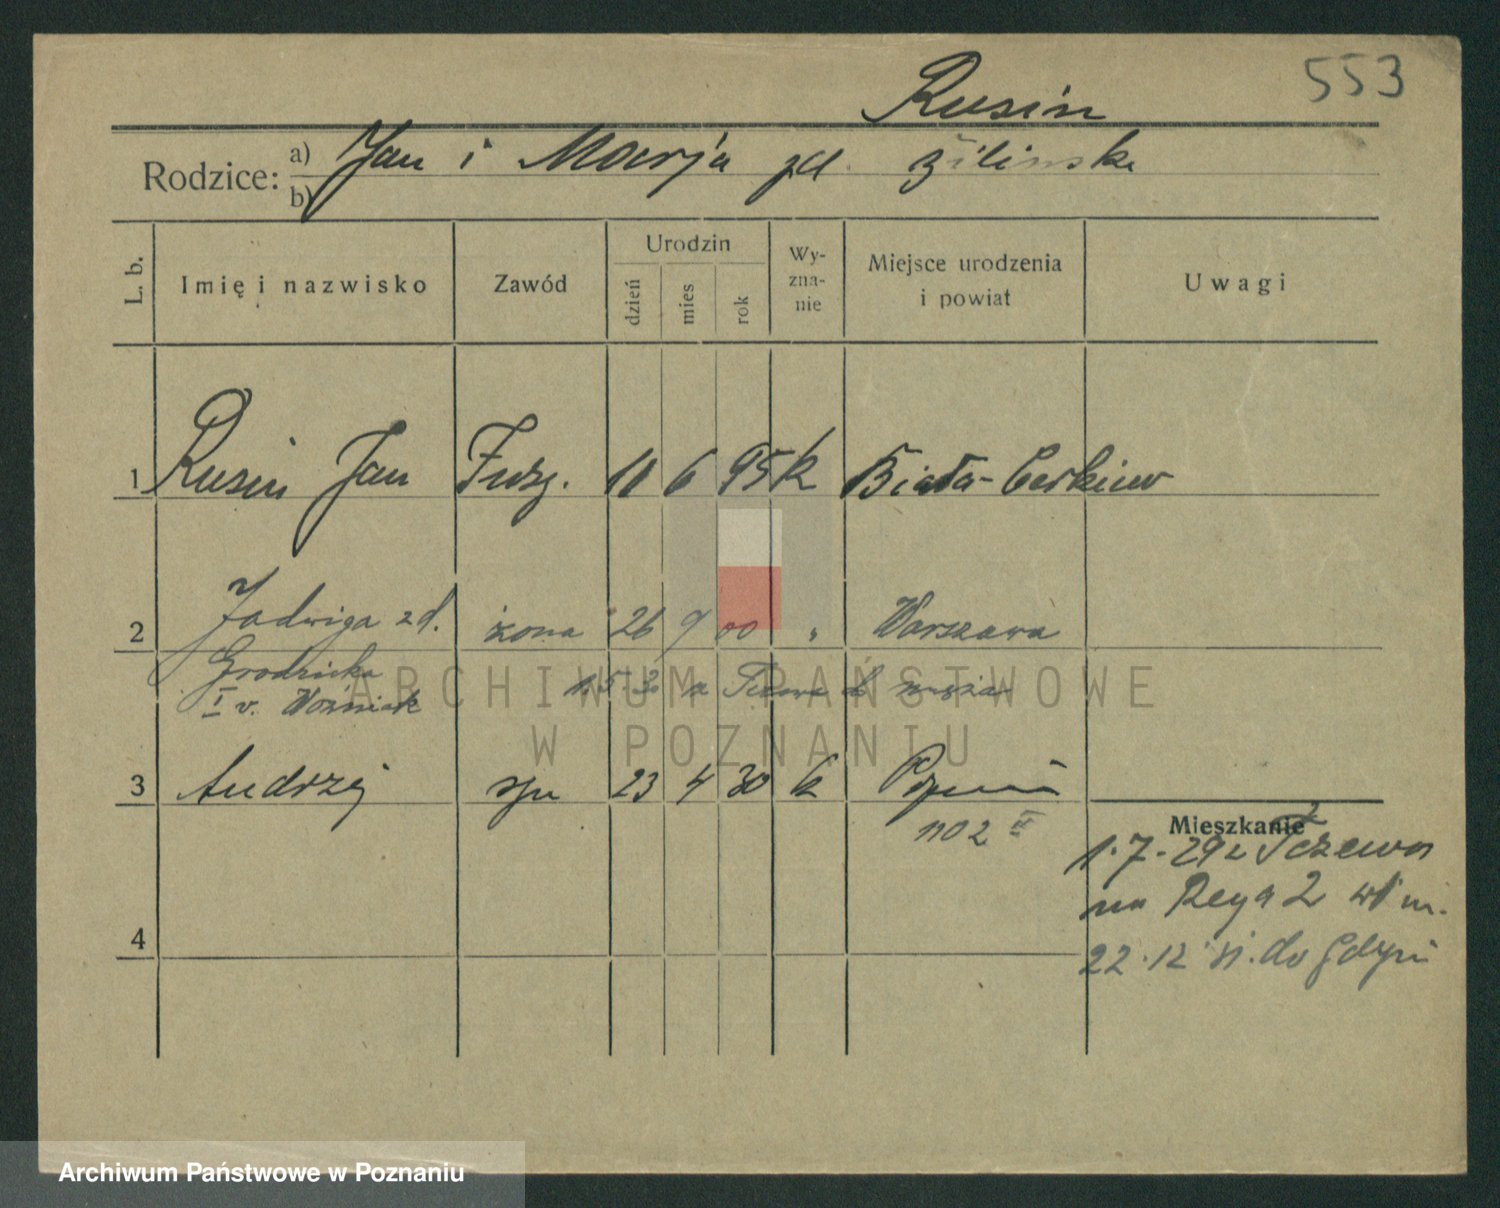 553
Rusin
Rodzice: a) Jan i Marja zd. Żilinska
b)
L. b. Imię i nazwisko Zawód Urodzin dzień mies rok Wyznanie Miejsce urodzenia i powiat Uwagi
1 Rusin Jan Fryz. 11 6 95 k Biała-Cerkiew
2 Jadwiga zd. żona 26 9 00 " Warszawa
Grodzicka 1.5.30 z Tczewa d. męża
I v. Woźniak
3 Andrzej syn 23 4 30 k Poznań
1102 III
Mieszkanie
1.7.29 z Tczewa
na Reya 2 wł m.
4
22.12 31. do Gdyni
ARCHIWUM PAŃSTWOWE
W POZNANIU
Archiwum Państwowe w Poznaniu